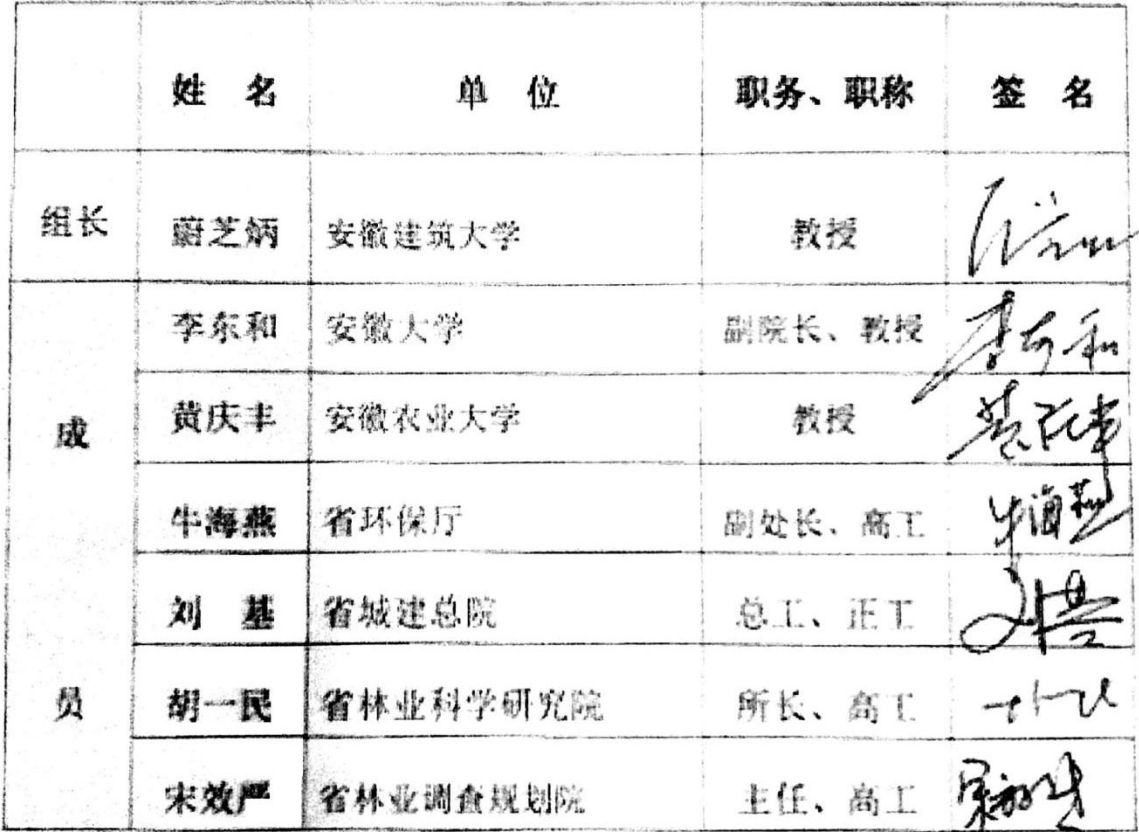 姓 名 单 位 职务、职称 签 名
组长 蔚芝炳 安徽建筑大学 教授
李东和 安徽大学 副院长、教授 李东和
成 黄庆丰 安徽农业大学 教授 黄庆丰
牛海燕 省环保厅 副处长、高工 牛海燕
刘 基 省城建总院 总工、正工 刘基
员 胡一民 省林业科学研究院 所长、高工
宋效严 省林业调查规划院 主任、高工